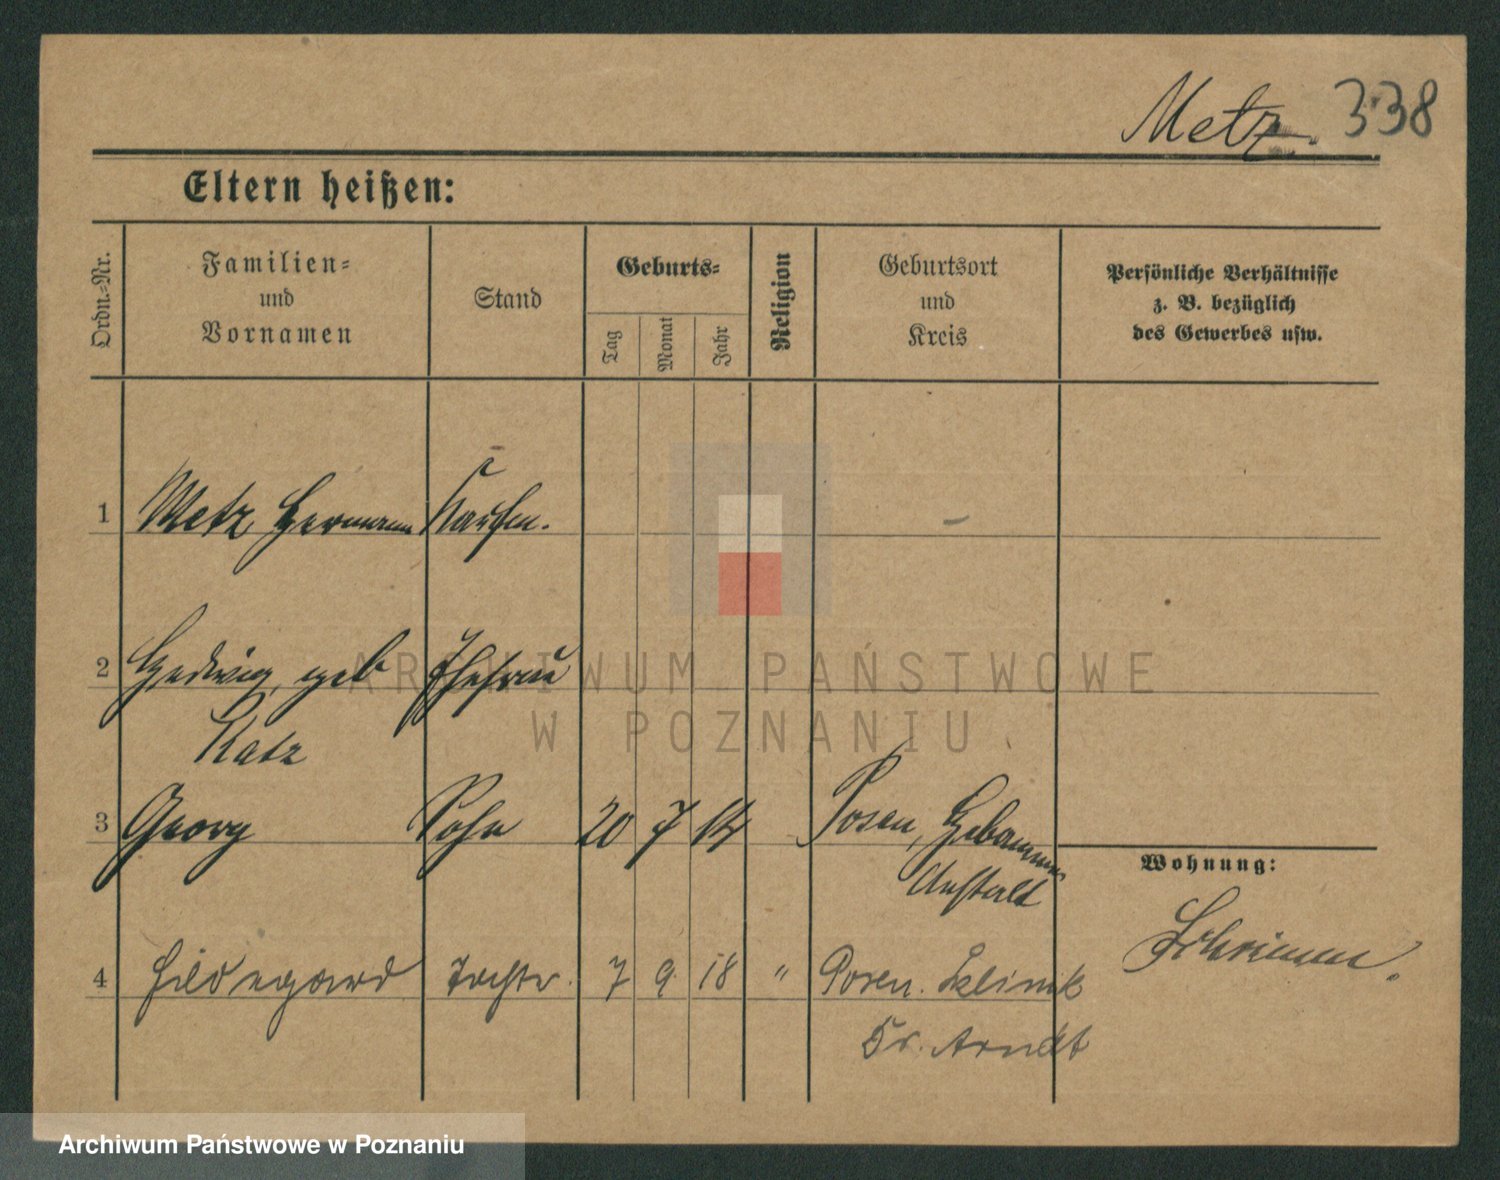 Metz. 338
Eltern heißen:
Ordn.-Nr.
Familien-
und
Vornamen
Stand
Geburts-
Tag
Monat
Jahr
Religion
Geburtsort
und
Kreis
Persönliche Verhältnisse
z. B. bezüglich
des Gewerbes usw.
1 Metz, Hermann Kaufm.
2 Hedwig, geb Ehefrau
Katz
3 Georg Sohn 20 7 14 Posen, Hebammen
Anstalt
Wohnung:
Schrimm.
4 Hildegard Tochter. 7 9 18 " Posen. Klinik
Dr. Arndt
ARCHIWUM PAŃSTWOWE
W POZNANIU
Archiwum Państwowe w Poznaniu